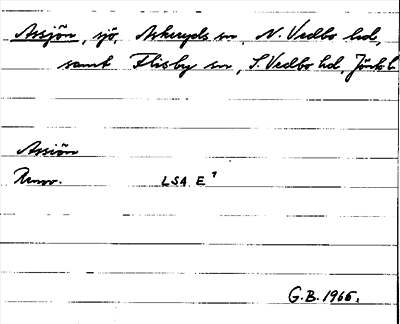 Assjön, sjö, Askeryds sn, N. Vedbo hd,
samt Flisby sn, S. Vedbo hd, Jönk. l
Assiön
Renov. LSA E 7
G.B. 1965.